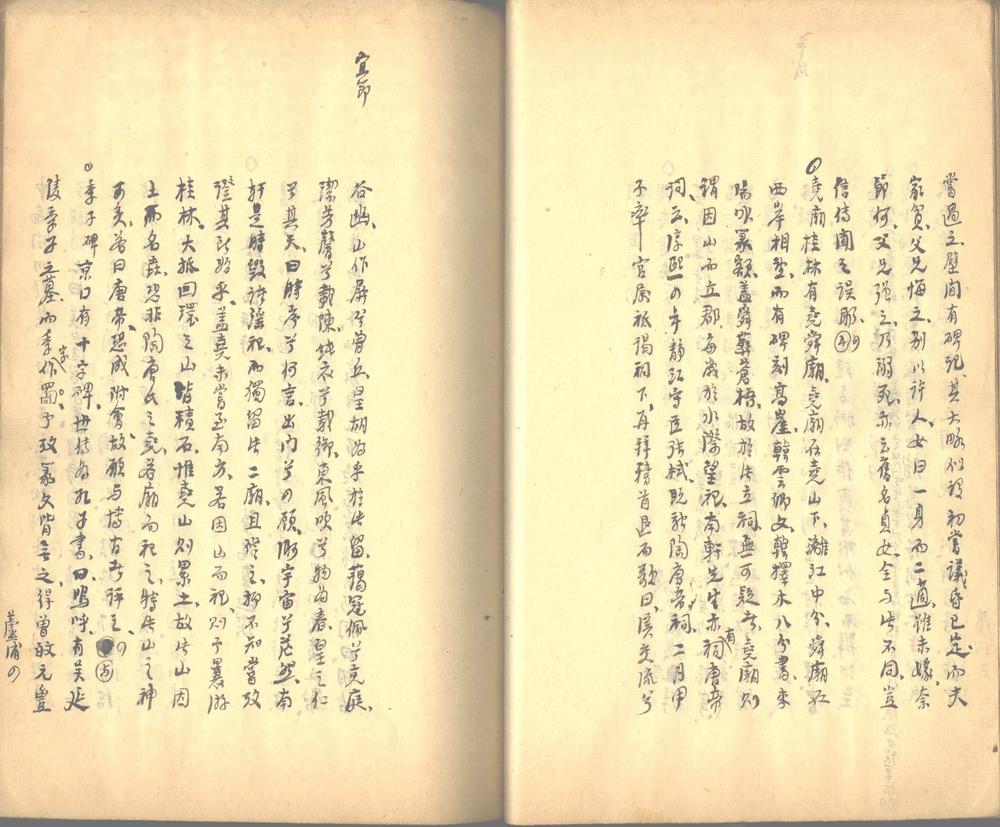 當過之壁間有碑記其大略似謂初嘗議昏已定而夫
家貧父兄悔之別以許人女曰一身而二適雖未嫁奈
節何父兄強之乃溺死亦云舊名貞女全与此不同豈
信傳聞之誤耶
堯廟桂林有堯舜廟堯廟在堯山下灕江中分舜廟在
西岸相望而有碑刻高崖韓雲卿文韓擇木八分書李
陽冰篆額蓋舜葬蒼梧故於此立祠無可疑者堯廟則
謂因山而立郡每歲於水際望祀南軒先生亦有祠唐帝
詞云淳熙四年靜江守臣張栻既新陶唐帝祠二月甲
子率官屬祗謁祠下再拜稽首退而歌曰溪交流兮
宜節
谷幽山作屏兮曾丘皇胡為乎於此留藹冠佩兮充庭
潔芳馨兮載陳純衣兮載御東風吹兮物為春皇之仁
兮其天曰時序兮何言出門兮四顧渺宇宙兮茫然南
軒是時毀諸淫祀而獨留此二廟且登之抑不知嘗攷
證其所始乎蓋堯未嘗至南方若因山而祀則予暴游
桂林大抵回環之山皆積石惟堯山則累土故此山因
土而名堯恐非陶唐氏之堯若廟而祀之特此山之神
可矣若曰唐帝恐成附會故願与博古者評之
季子碑京口有十字碑世傳為孔子書曰嗚呼有吳延
陵季子之墓而季作罽字予攷篆文皆無之得曾旼元豐
蘆浦四